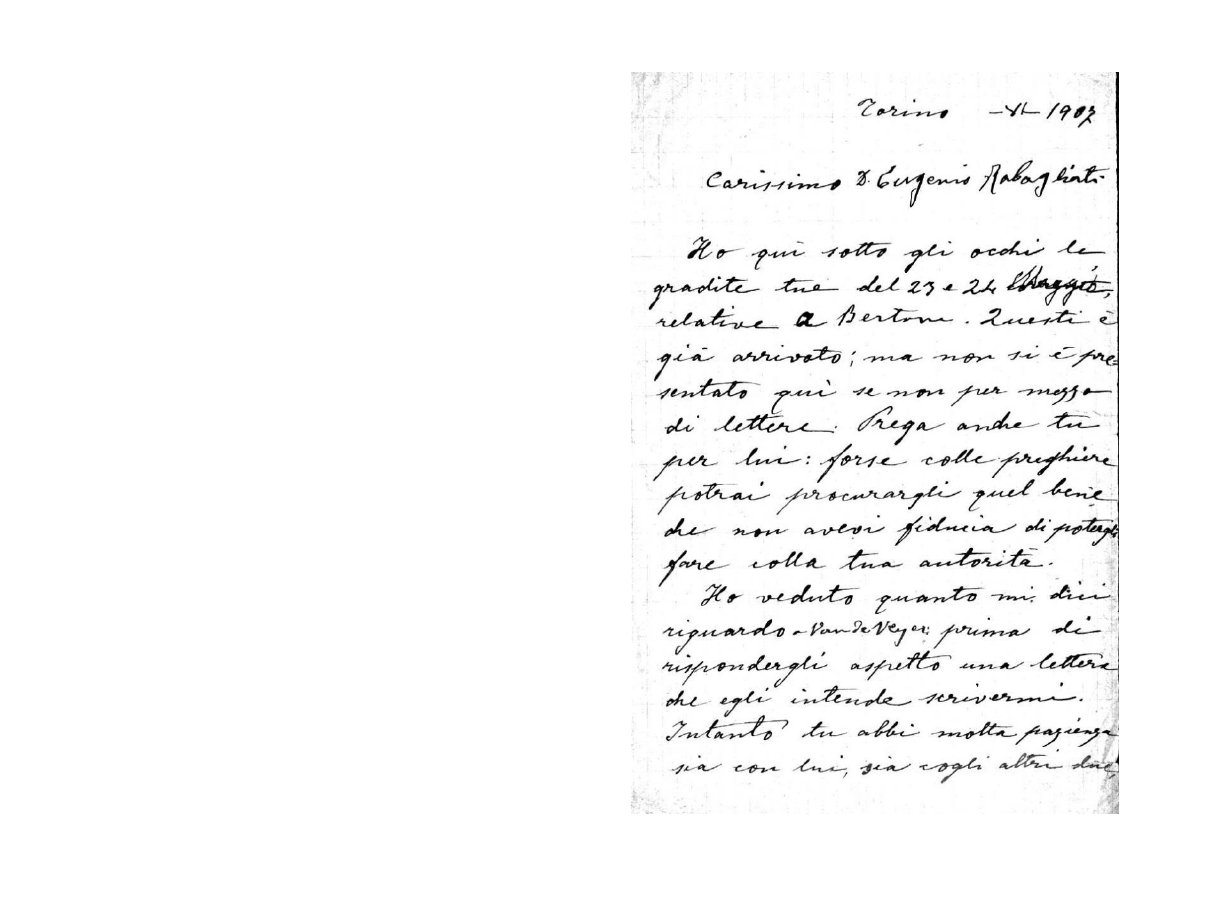 Torino -VI- 1907
Carissimo D. Eugenio Rabagliati
Ho quì sotto gli occhi le
gradite tue del 23 e 24 Maggio,
relative a Bertoni. Questi è
già arrivato; ma non si è pre=
sentato quì se non per mezzo
di lettere. Prega anche tu
per lui: forse colle preghiere
potrai procurargli quel bene
che non avevi fiducia di potergli
fare colla tua autorità.
Ho veduto quanto mi dici
riguardo a Van de Veyer: prima di
rispondergli aspetto una lettera
che egli intende scrivermi.
Intanto tu abbi molta pazienza
sia con lui, sia cogli altri due,